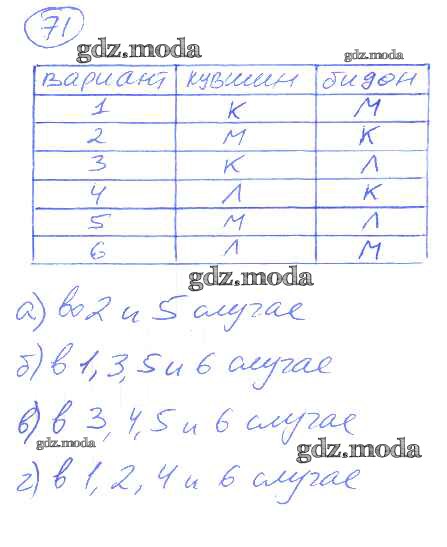 71
gdz.moda
gdz.moda
вариант кувшин бидон
1 К М
2 М К
3 К Л
4 Л К
5 М Л
6 Л М
gdz.moda
а) во 2 и 5 случае
б) в 1, 3, 5 и 6 случае
в) в 3, 4, 5 и 6 случае
gdz.moda
gdz.moda
г) в 1, 2, 4 и 6 случае